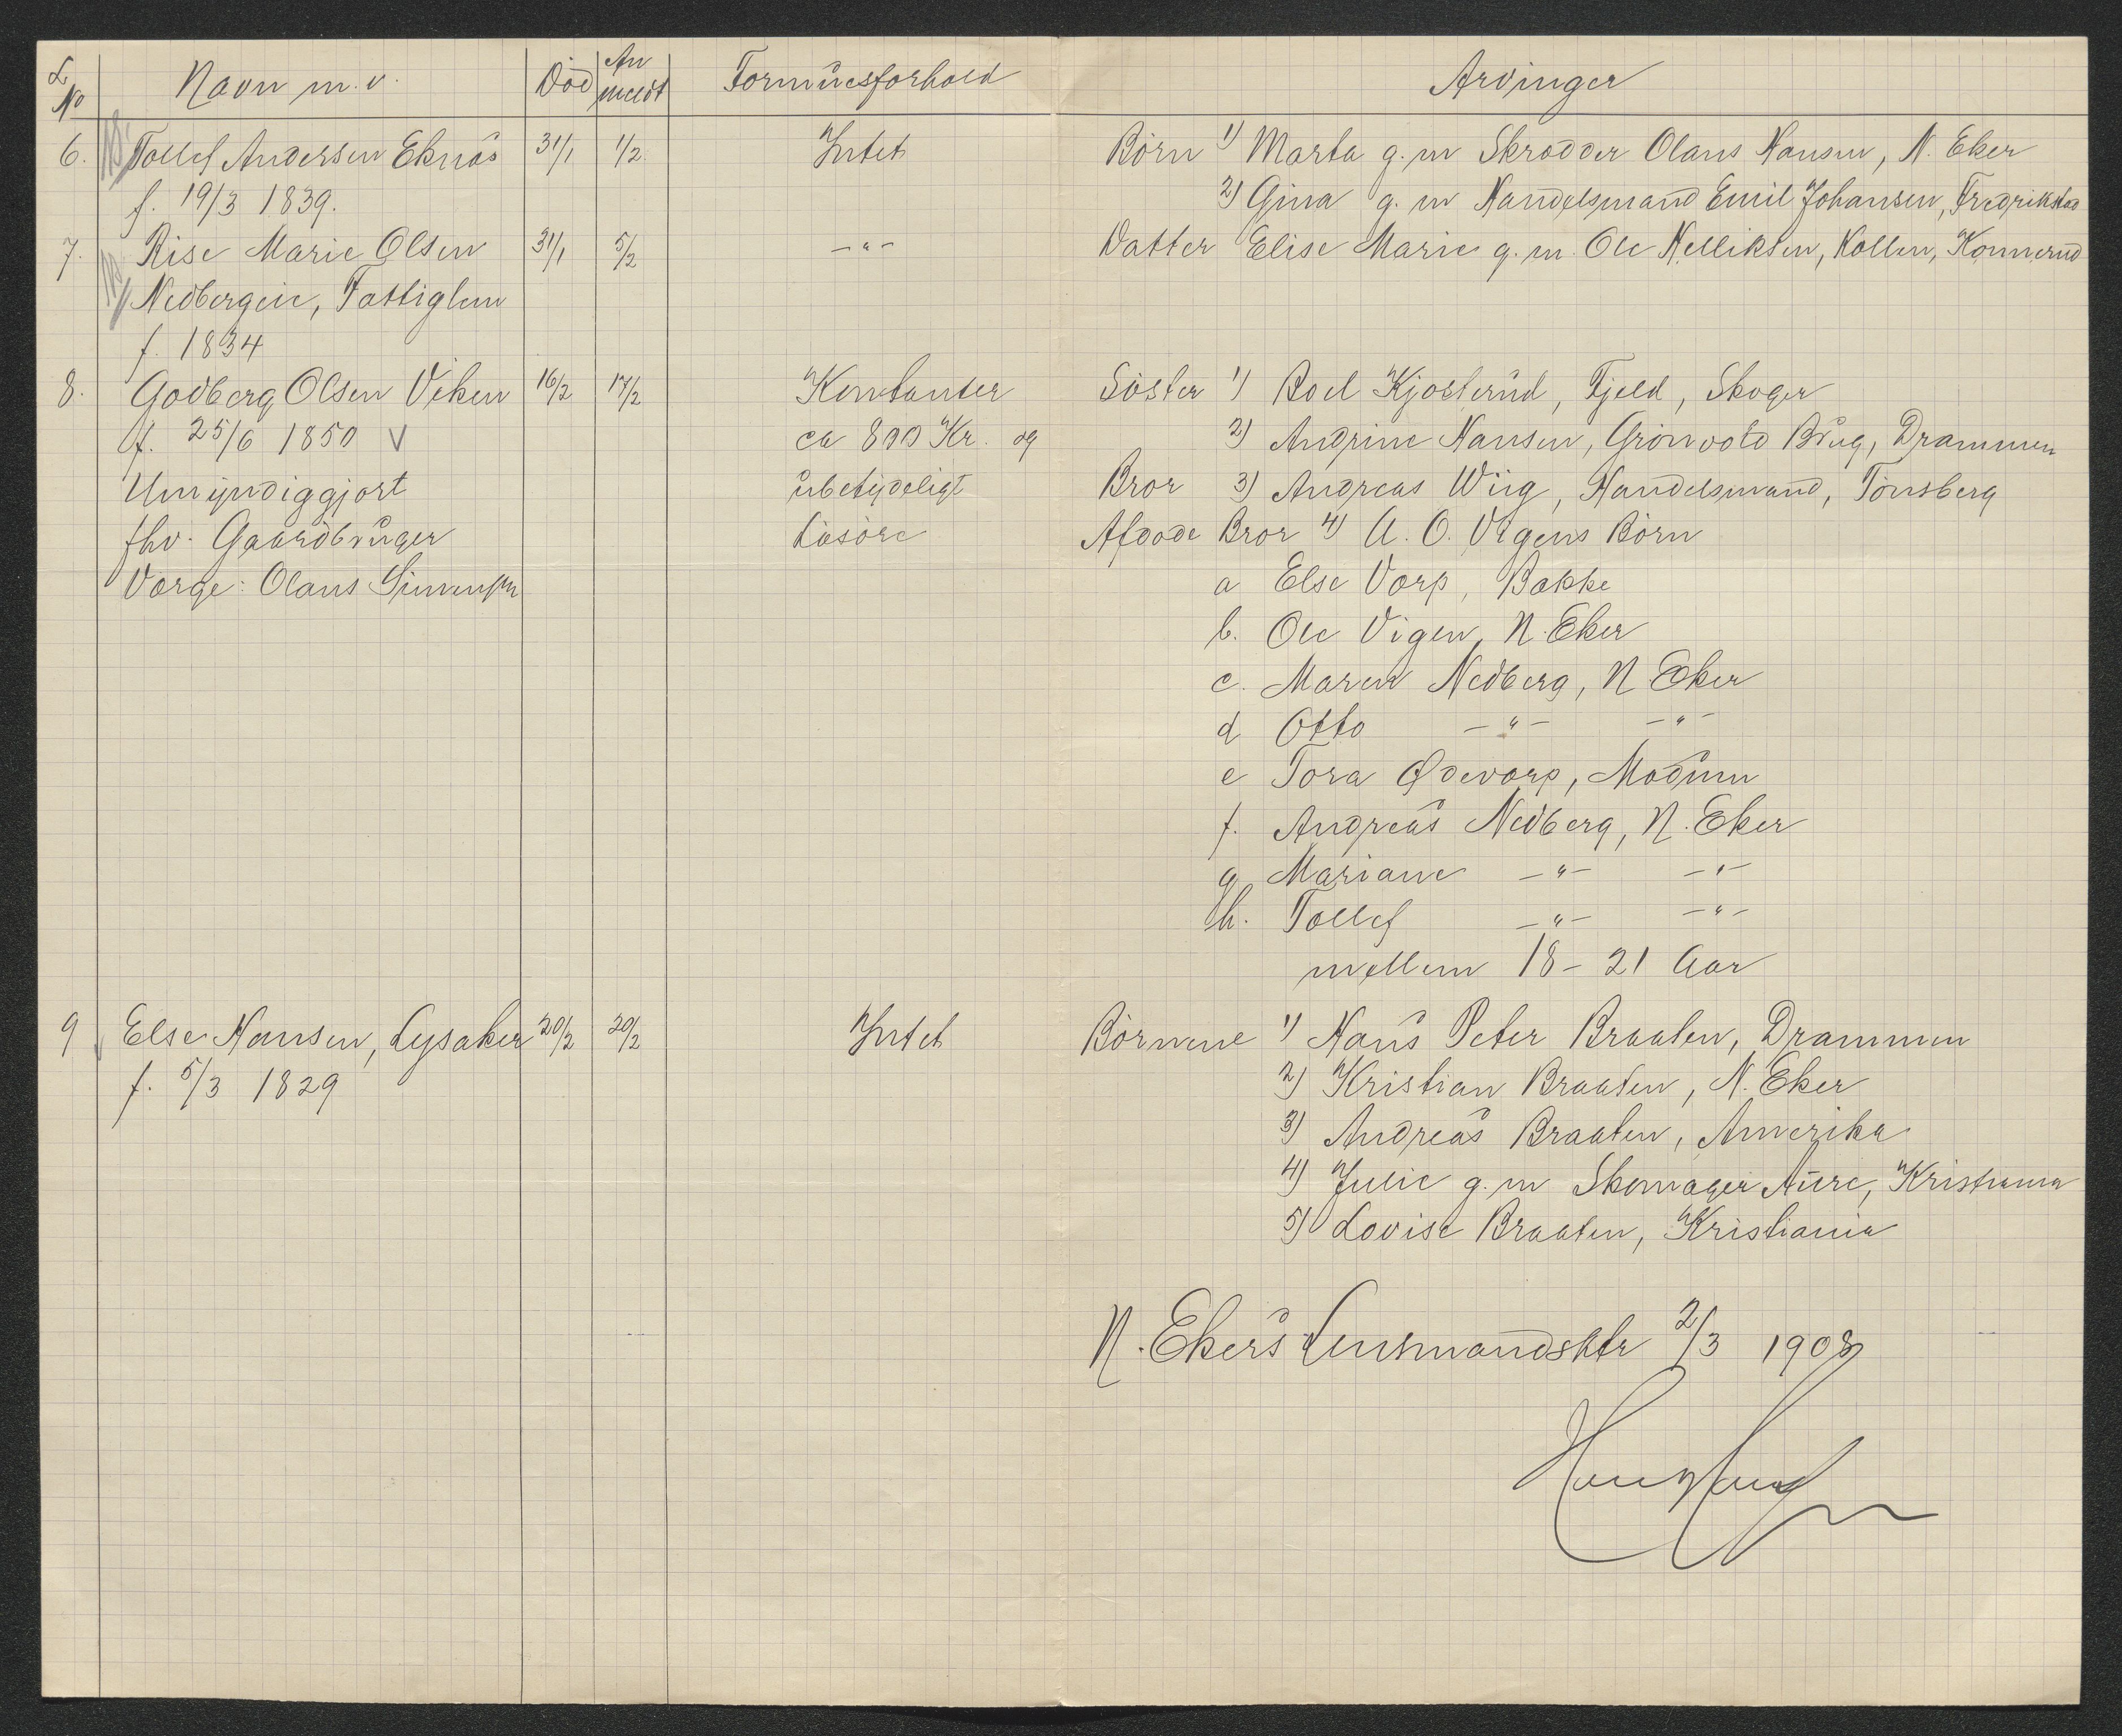 L. No Navn m. v. Död An meldt Formuesforhold Arvinger
6. Tollef Andersen Eknæs 31/1 1/2 Intet Börn 1) Marta g. m Skrædder Olaus Hansen, N. Eker
f. 19/3 1839. 2) Gina g. m Handelsmand Emil Johansen, Fredrikstad
7. Rise Marie Olsen 31/1 5/2 - " - Datter Elise Marie g. m. Ole Helliksen, Kollen, Konnerud
Nedbergeie, Fattiglem
f. 1834
8. Godberg Olsen Viken 16/2 17/2 Kontanter Söster 1) Boel Kjosterud, Fjeld, Skoger
f. 25/6 1850 V ca 800 Kr. og 2) Andrine Hansen, Grönvold Brug, Drammen
Umyndiggjort ubetydeligt Bror 3) Andreas Wiig, Handelsmand, Tönsberg
fhv. Gaardbruger Lösöre Afdöde Bror 4) A. O. Vigens Börn
Værge: Olaus Simensen a Else Vorp, Bakke
b. Ole Vigen, N. Eker
c. Maren Nedberg, N. Eker
d Otto - " - - " -
e Tora Ødevorp, Modum
f. Andreas Nedberg, N. Eker
g Mariane - " - - " -
h. Tollef - " - - " -
mellem 18 - 21 Aar
9 Else Hansen, Lysaker 20/2 20/2 Intet Börnene 1) Hans Peter Braaten, Drammen
f. 5/3 1829 2) Kristian Braaten, N. Eker
3) Andreas Braaten, Amerika
4) Julie g. m Skomager Aure, Kristiania
5) Lovise Braaten, Kristiania
N. Ekers Lensmandsktr 2/3 1908